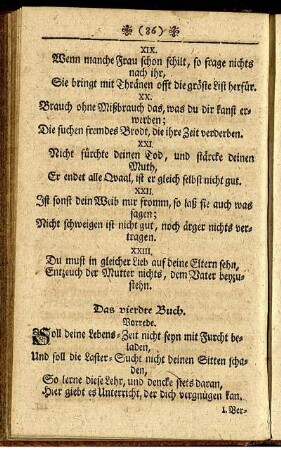 (86)
XIX.
Wenn manche Frau schon schilt, so frage nichts
nach ihr,
Sie bringt mit Thränen offt die gröste List herfür.
XX.
Brauch ohne Mißbrauch das, was du dir kanst er-
werben;
Die suchen fremdes Brodt, die ihre Zeit verderben.
XXI.
Nicht fürchte deinen Tod, und stärcke deinen
Muth,
Er endet alle Qvaal, ist er gleich selbst nicht gut.
XXII.
Ist sonst dein Weib nur fromm, so laß sie auch was
sagen;
Nicht schweigen ist nicht gut, noch ärger nichts ver-
tragen.
XXIII.
Du must in gleicher Lieb auf deine Eltern sehn,
Entzeuch der Mutter nichts, dem Vater beyzu-
stehn.
Das vierdte Buch.
Vorrede.
Soll deine Lebens-Zeit nicht seyn mit Furcht be-
laden,
Und soll die Laster-Sucht nicht deinen Sitten scha-
den,
So lerne diese Lehr, und dencke stets daran,
Hier giebt es Unterricht, der dich vergnügen kan.
1. Ver-